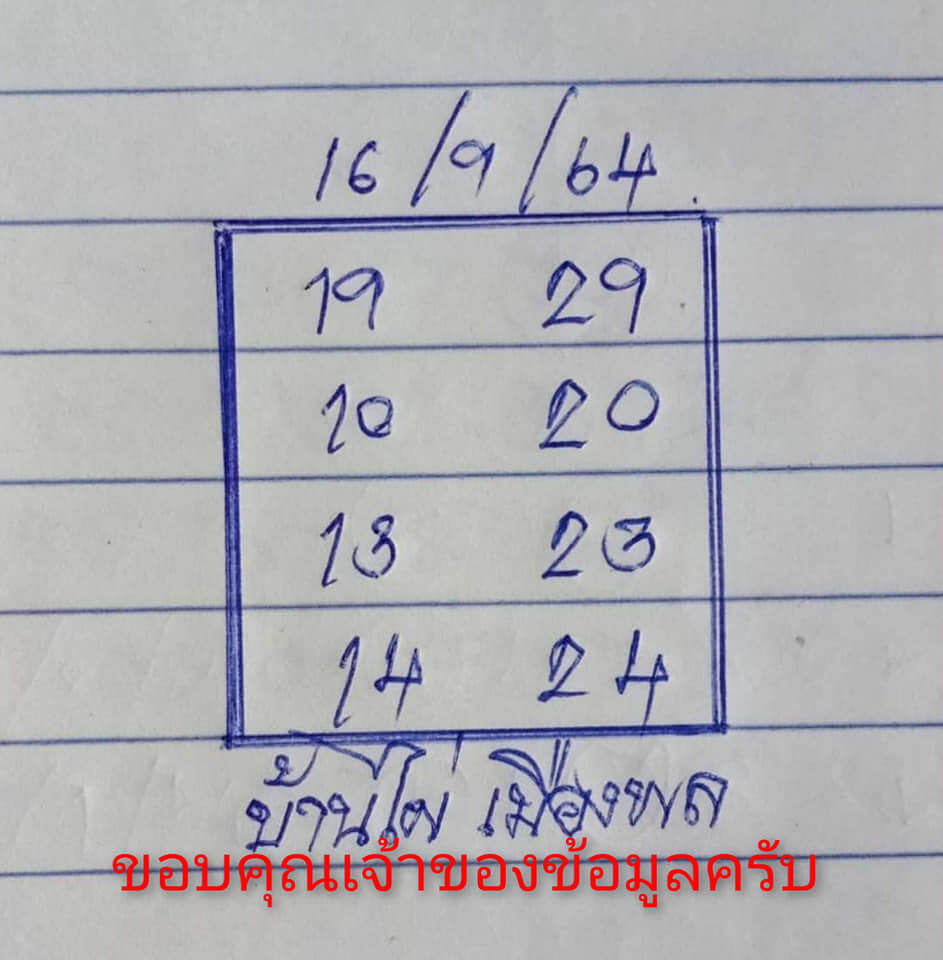 16/9/64
19 29
10 20
13 23
14 24
บ้านไผ่ เมืองพล
ขอบคุณเจ้าของข้อมูลครับ